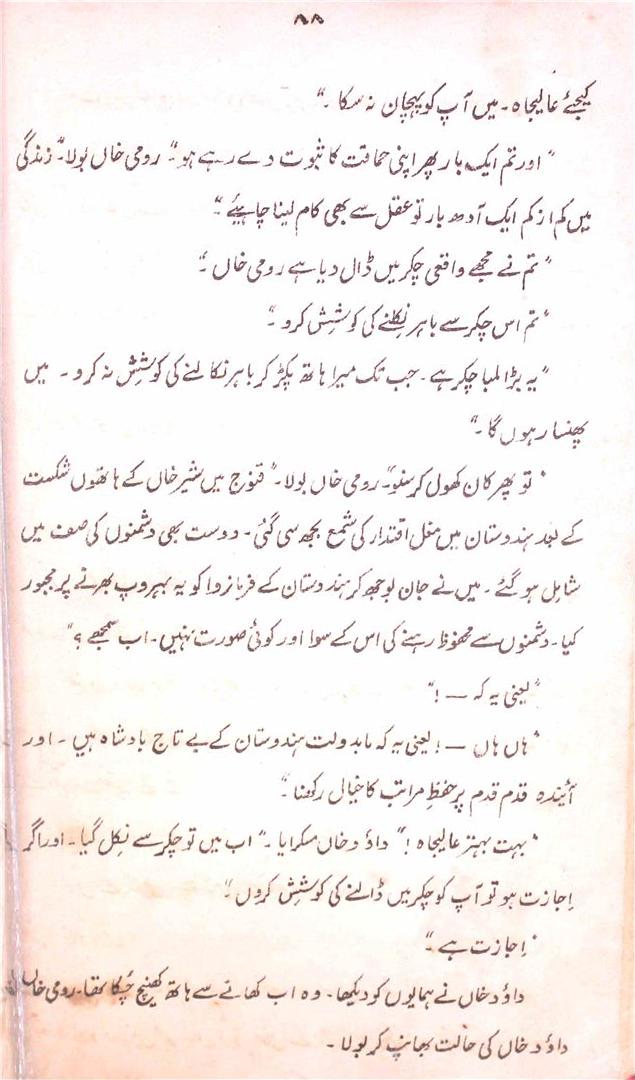 ۸۸
کیجئے عالیجاہ۔ میں آپ کو پہچان نہ سکا۔“
”اور تم ایک بار پھر اپنی حماقت کا ثبوت دے رہے ہو“ رومی خاں بولا۔”زندگی
میں کم از کم ایک آدھ بار تو عقل سے بھی کام لینا چاہیئے۔“
”تم نے مجھے واقعی چکر میں ڈال دیا ہے رومی خاں۔“
”تم اس چکر سے باہر نکلنے کی کوشش کرو۔“
”یہ بڑا لمبا چکر ہے۔ جب تک میرا ہاتھ پکڑ کر باہر نکالنے کی کوشش نہ کرو۔ میں
پھنسا رہوں گا۔“
”تو پھر کان کھول کر سنو“۔ رومی خاں بولا۔”قنوج میں شیر خاں کے ہاتھوں شکست
کے بعد ہندوستان میں مغل اقتدار کی شمع بجھ سی گئی۔ دوست بھی دشمنوں کی صف میں
شامل ہو گئے۔ میں نے جان بوجھ کر ہندوستان کے فرمانروا کو یہ بہروپ بھرنے پر مجبور
کیا۔ دشمنوں سے محفوظ رہنے کی اس کے سوا اور کوئی صورت نہیں۔ اب سمجھے؟“
”یعنی یہ کہ —!“
”ہاں ہاں —! یعنی یہ کہ مابدولت ہندوستان کے بے تاج بادشاہ ہیں۔ اور
آئیندہ قدم قدم پر حفظِ مراتب کا خیال رکھنا۔“
”بہت بہتر عالیجاہ!“ داؤد خاں مسکرایا۔”اب میں تو چکر سے نکل گیا۔ اور اگر
اِجازت ہو تو آپ کو چکر میں ڈالنے کی کوشش کروں۔“
”اِجازت ہے۔“
داؤد خاں نے ہمایوں کو دیکھا۔ وہ اب کھانے سے ہاتھ کھینچ چُکا تھا۔ رومی خاں
داؤد خاں کی حالت بھانپ کر بولا۔